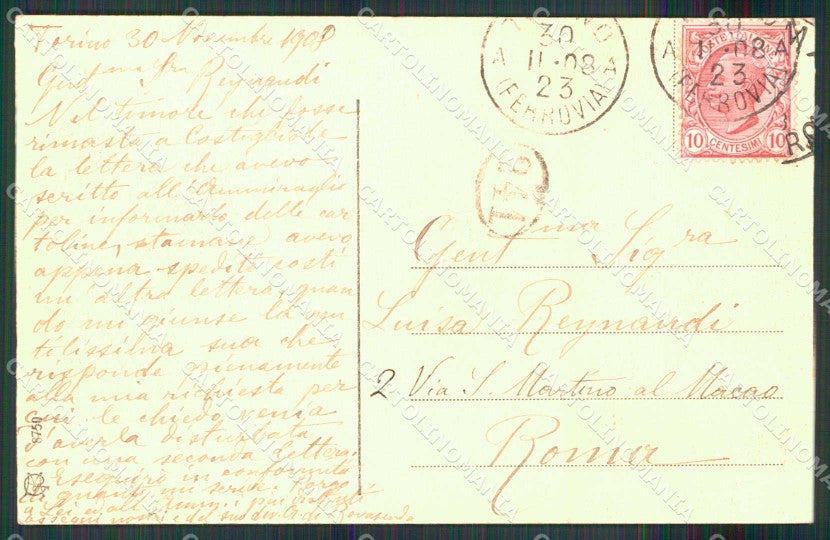 Torino 30 Novembre 1908
Gent.ma Sra Reynaudi
Nel timore che fosse
rimasta a Costigliole
la lettera che avevo
scritto all'Ammiraglio
per informarlo delle car
toline, stamane avevo
appena spedito costì
un'altra lettera, quan
do mi giunse la gen
tilissima sua che
risponde pienamente
alla mia richiesta per
cui le chiedo venia
d'averla disturbata
con una seconda lettera.
Eseguirò in conformità
di quanto mi scrive. Porgo
a Lei e all'Amm.
ossequi
di Rovasenda
8750
TORINO
30
A 11-08 A
23
(FERROVIA)
30
A 11-08 A
23
(FERROVIA)
POSTE ITALIANE
10 CENTESIMI 10
Gent.ma Sig.ra
Luisa Reynaudi
2 Via S. Martino al Macao
Roma
CARTOLINOMANIA